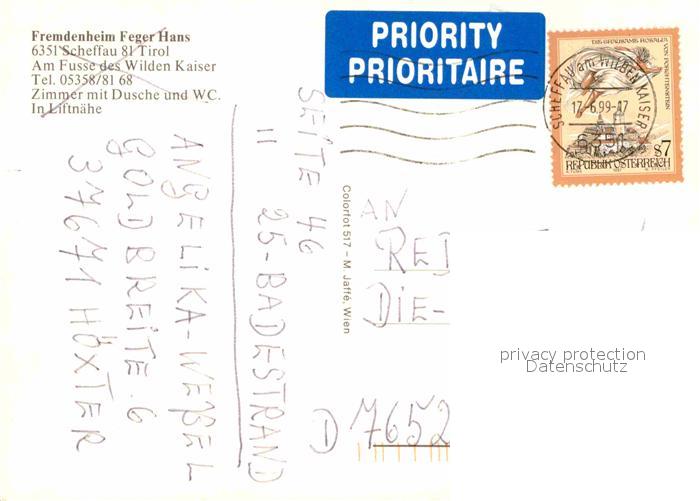 Fremdenheim Feger Hans
6351 Scheffau 81 Tirol
Am Fusse des Wilden Kaiser
Tel. 05358/81 68
Zimmer mit Dusche und WC.
In Liftnähe
PRIORITY
PRIORITAIRE
SCHEFFAU am WILDEN KAISER
17.6.99-17
6351
s7
REPUBLIK ÖSTERREICH
SEITE 46
11
25-BADESTRAND
ANGELIKA-WEßEL
GOLDBREITE.6
37671 HÖXTER
Colorfot 517 – M. Jaffé, Wien
AN
REI
DIE-
D 7652
privacy protection
Datenschutz